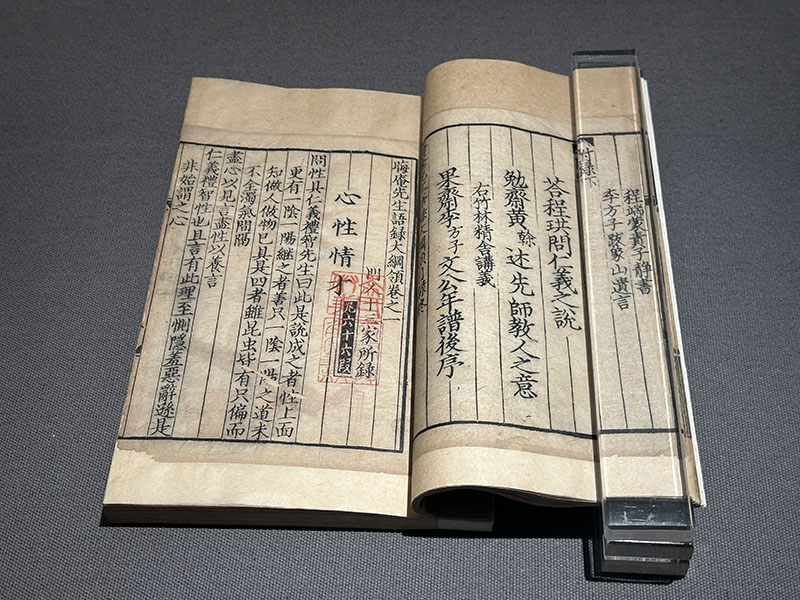 附錄下
程端蒙責子靜書
李方子跋蒙山遺言
荅程珙問仁義之說
勉齋黃榦述先師教人之意
右竹林精舍講義
果齋李方子文公年譜後序
晦庵先生語録大綱領卷之一
門人十三家所録
心性情才
凡六十六段
問性具仁義禮智先生曰此是說成之者性上面
更有一陰一陽繼之者善只一陰一陽之道未
知做人做物已具是四者雖昆虫皆有只偏而
不全濁氣間隔
盡心以見言盡性以養言
仁義禮智性也且言有此理至惻隱羞惡辭遜是
非始謂之心